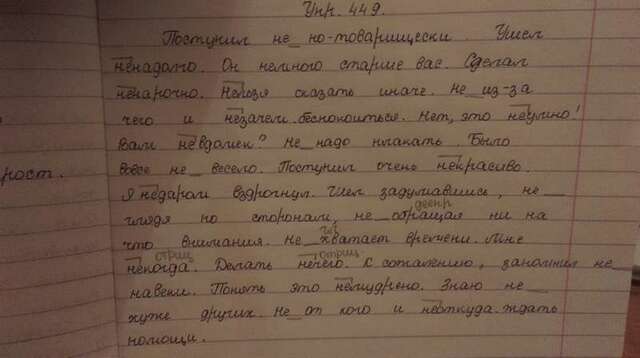 Упр. 449.
Поступил не_по-товарищески. Ушел
ненадолго. Он немного старше вас. Сделал
ненарочно. Нельзя сказать иначе. Не_из-за
чего и незачем беспокоиться. Нет, это неумно!
Вам невдомек? Не_надо плакать. Было
вовсе не_весело. Поступил очень некрасиво.
рост.
Я недаром вздрогнул. Шел задумавшись, не_
деепр
глядя по сторонам, не_обращая ни на
гл
что внимания. Не_хватает времени. Мне
отриц отриц.
некогда. Делать нечего. К сожалению, запомнил не_
навеки. Понять это немудрено. Знаю не_
хуже других. Не_от кого и неоткуда ждать
помощи.